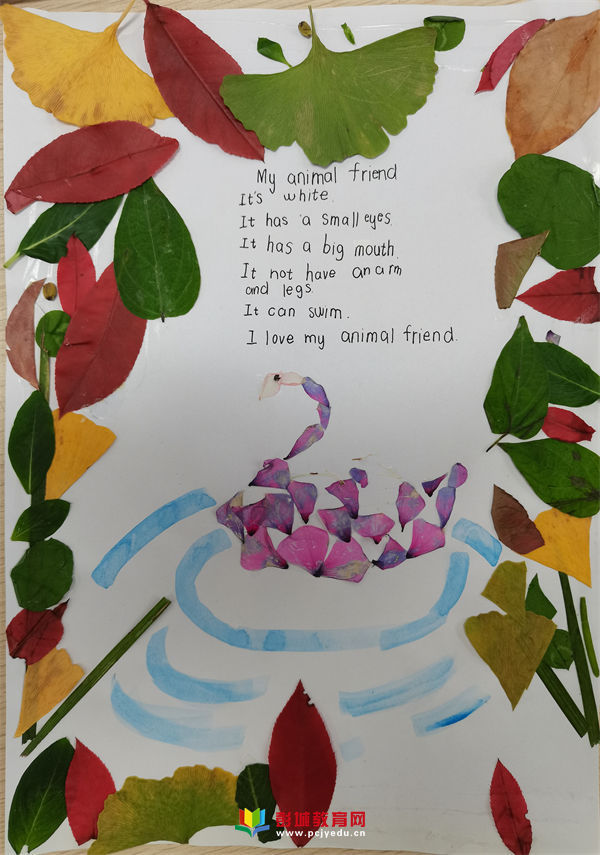 My animal friend
It's white.
It has a small eyes.
It has a big mouth.
It not have an arm
and legs.
It can swim.
I love my animal friend.
彭城教育网
www.pcjyedu.cn